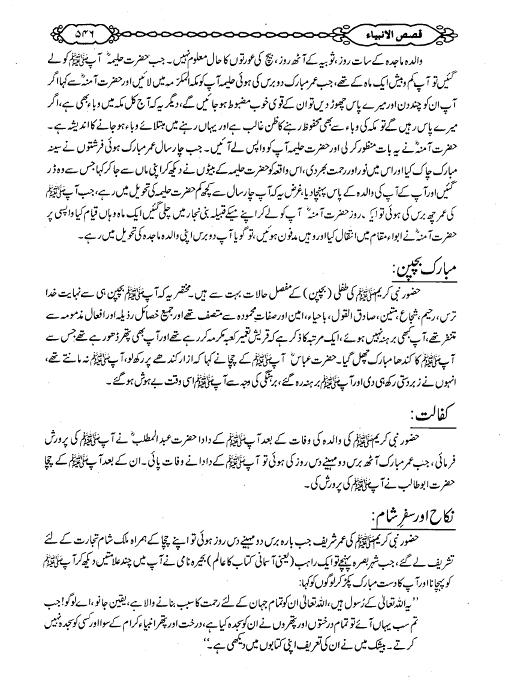 قصص الانبیاء
۵۴۶
والدہ ماجدہ کے سات روز، ثویبہ کے آٹھ روز، بیچ کی عورتوں کا حال معلوم نہیں۔ جب حضرت حلیمہؓ آپ ﷺ کو لے
گئیں تو آپ کم و بیش ایک ماہ کے تھے، جب عمر مبارک دو برس کی ہوئی حلیمہ آپ کو مکۃ المکرمہ میں لائیں اور حضرت آمنہؓ سے کہا اگر
آپ ان کو چند دن اور میرے پاس چھوڑ دیں تو ان کے قوی خوب مضبوط ہو جائیں گے، دیگر یہ کہ آج کل مکہ میں وباء بھی ہے، اگر
میرے پاس رہیں گے تو مکہ کی وباء سے بھی محفوظ رہنے کا ظن غالب ہے اور یہاں رہنے میں مبتلائے وباء ہو جانے کا اندیشہ ہے۔
حضرت آمنہؓ نے یہ بات منظور کر لی اور حضرت حلیمہ آپ کو واپس لے آئیں۔ جب چار سال عمر مبارک ہوئی فرشتوں نے سینہ
مبارک چاک کیا اور اس میں نور اور رحمت بھر دی، اس واقعہ کو حضرت حلیمہ کے بیٹوں نے دیکھ کر اپنی ماں سے جا کر کہا جس سے وہ ڈر
گئیں اور آپ کے آپ کی والدہ کے پاس پہنچا دیا، غرض یہ کہ آپ چار سال سے کچھ کم حضرت حلیمہ کی تحویل میں رہے، جب آپ ﷺ
کی عمر چھ برس کی ہوئی تو ایک روز حضرت آمنہؓ آپ کو لے کر اپنے میکے قبیلہ بنی نجار میں چلی گئیں ایک ماہ وہاں قیام کیا واپسی پر
حضرت آمنہؓ نے ابواء مقام میں انتقال کیا اور وہیں مدفون ہوئیں، تو گویا آپ دو برس اپنی والدہ ماجدہ کی تحویل میں رہے۔
مبارک بچپن:
حضور نبی کریم ﷺ کی طفلی (بچپن) کے مفصل حالات بہت سے ہیں۔ مختصر یہ کہ آپ ﷺ بچپن ہی سے نہایت خدا
ترس، رحیم، شجاع، متین، صادق القول، باحیاء، امین اور صفات محمودہ سے متصف تھے اور جمیع خصائل رذیلہ اور افعال مذمومہ سے
متنفر تھے، آپ کبھی برہنہ نہیں ہوئے، ایک مرتبہ کا ذکر ہے کہ قریش تعمیر کعبہ مکرمہ کر رہے تھے اور آپ بھی پتھر ڈھو رہے تھے جس سے
آپ ﷺ کا کندھا مبارک چھل گیا۔ حضرت عباسؓ آپ ﷺ کے چچا نے کہا کہ ازار کندھے پر رکھ لو، آپ ﷺ نہ مانتے تھے،
انہوں نے زبردستی رکھ ہی دی اور آپ ﷺ برہنہ رہ گئے، برہنگی کی وجہ سے آپ ﷺ اسی وقت بے ہوش ہو گئے۔
کفالت:
حضور نبی کریم ﷺ کی والدہ کی وفات کے بعد آپ ﷺ کے دادا حضرت عبدالمطلبؓ نے آپ ﷺ کی پرورش
فرمائی، جب عمر مبارک آٹھ برس دو مہینے دس روز کی ہوئی تو آپ ﷺ کے دادا نے وفات پائی۔ ان کے بعد آپ ﷺ کے چچا
حضرت ابو طالب نے آپ ﷺ کی پرورش کی۔
نکاح اور سفر شام:
حضور نبی کریم ﷺ کی عمر شریف جب بارہ برس دو مہینے دس روز ہوئی تو اپنے چچا کے ہمراہ ملک شام تجارت کے لئے
تشریف لے گئے، جب شہر بصرہ پہنچے تو ایک راہب (یعنی آسمانی کتاب کا عالم) بحیرہ نامی نے آپ میں چند علامتیں دیکھ کر آپ ﷺ
کو پہچانا اور آپ کا دست مبارک پکڑ کر لوگوں کو کہا:
”یہ اللہ تعالیٰ کے رسول ہیں، اللہ تعالیٰ ان کو تمام جہان کے لئے رحمت کا سبب بنانے والا ہے، یقین جانو، اے لوگو! جب
تم سب یہاں آئے تو تمام درختوں اور پتھروں نے ان کو سجدہ کیا ہے، درخت اور پتھر انبیاء کرام کے سوا اور کسی کو سجدہ نہیں
کرتے۔ بیشک میں نے ان کی تعریف اپنی کتابوں میں دیکھی ہے۔“